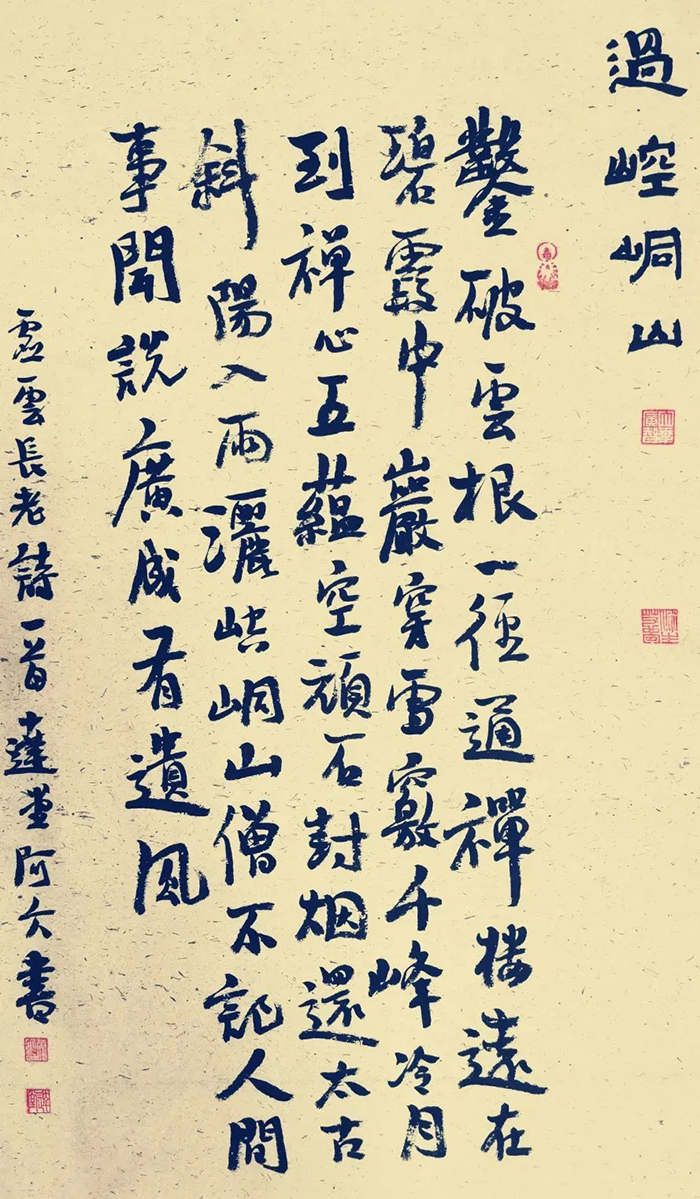 過崆峒山
鑿破雲根一徑通禪棲遠在
碧霞中巖穿雪竅千峰冷月
到禪心五蘊空頑石封烟還太古
斜陽入雨灑崆峒山僧不記人間
事聞說廣成有遺風
虛雲長老詩一首達堂阿書